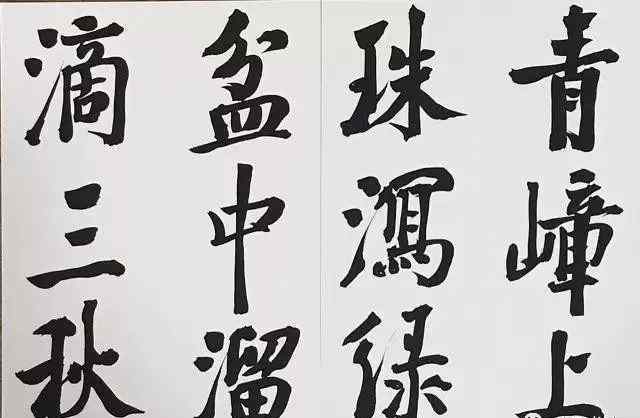 青嶂上
珠瀉绿
盆中溜
滴三秋